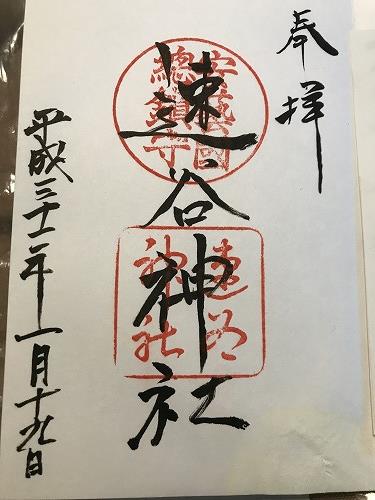 奉拝
速谷神社
安藝國
總鎮守
速谷
神社
平成三十一年一月十九日